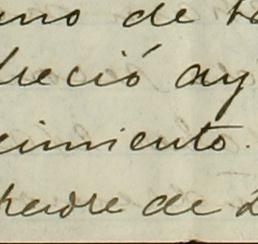 uno de
reció ay
cimiento.
padre de